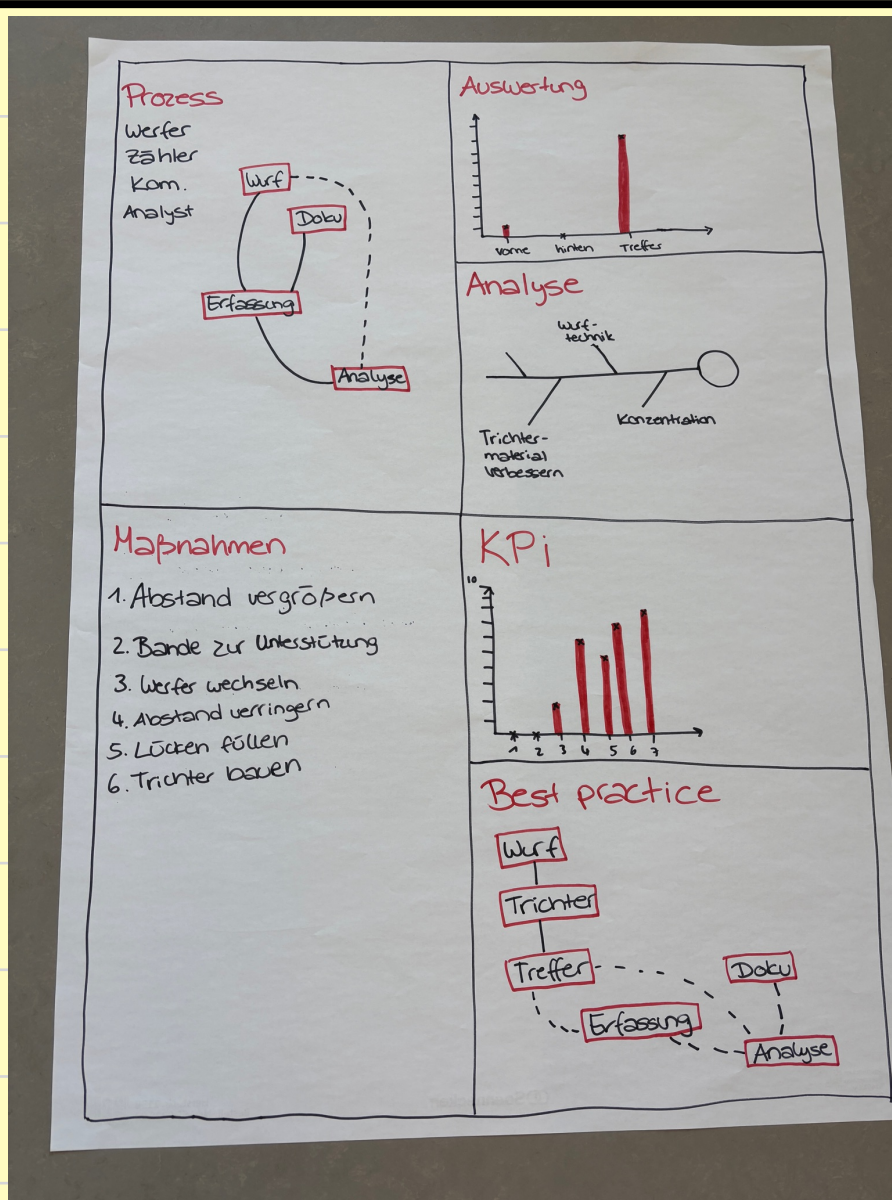 Prozess
Werfer
Zähler
Kom.
Analyst
Wurf
Doku
Erfassung
Analyse
Auswertung
vorne hinten Treffer
Analyse
Wurf-
technik
Konzentration
Trichter-
material
verbessern
Maßnahmen
1. Abstand vergrößern
2. Bande zur Unterstützung
3. Werfer wechseln
4. Abstand verringern
5. Lücken füllen
6. Trichter bauen
KPi
10
1 2 3 4 5 6 7
Best practice
Wurf
Trichter
Treffer
Doku
Erfassung
Analyse